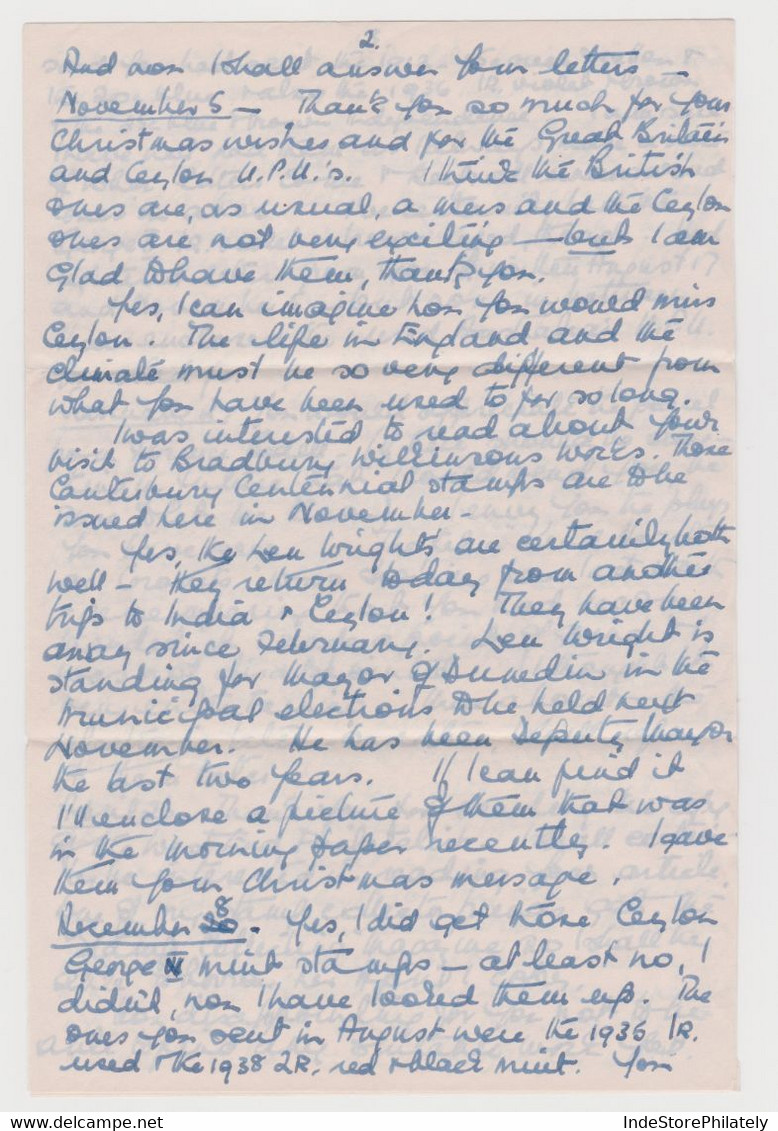 2.
And now I shall answer your letters –
November 5 – Thank you so much for your
Christmas wishes and for the Great Britain
and Ceylon U.P.U.'s. I think the British
ones are, as usual, a mess and the Ceylon
ones are not very exciting – but I am
glad to have them, thank you.
Yes, I can imagine how you would miss
Ceylon. The life in England and the
climate must be so very different from
what you have been used to for so long.
I was interested to read about your
visit to Bradbury Wilkinsons Works. Those
Canterbury Centennial stamps are to be
issued here in November –
Yes, the Len Wrights are certainly both
well – they return today from another
trip to India & Ceylon! They have been
away since February. Len Wright is
standing for Mayor of Dunedin in the
municipal elections to be held next
November. He has been Deputy Mayor
the last two years. If I can find it
I'll enclose a picture of them that was
in the morning paper recently. I gave
them your Christmas message.
December 8. Yes, I did get those Ceylon
George VI mint stamps – at least no, I
didn't, now I have looked them up. The
ones you sent in August were the 1935 1R.
used & the 1938 2R. red & black mint. You
IndeStorePhilately